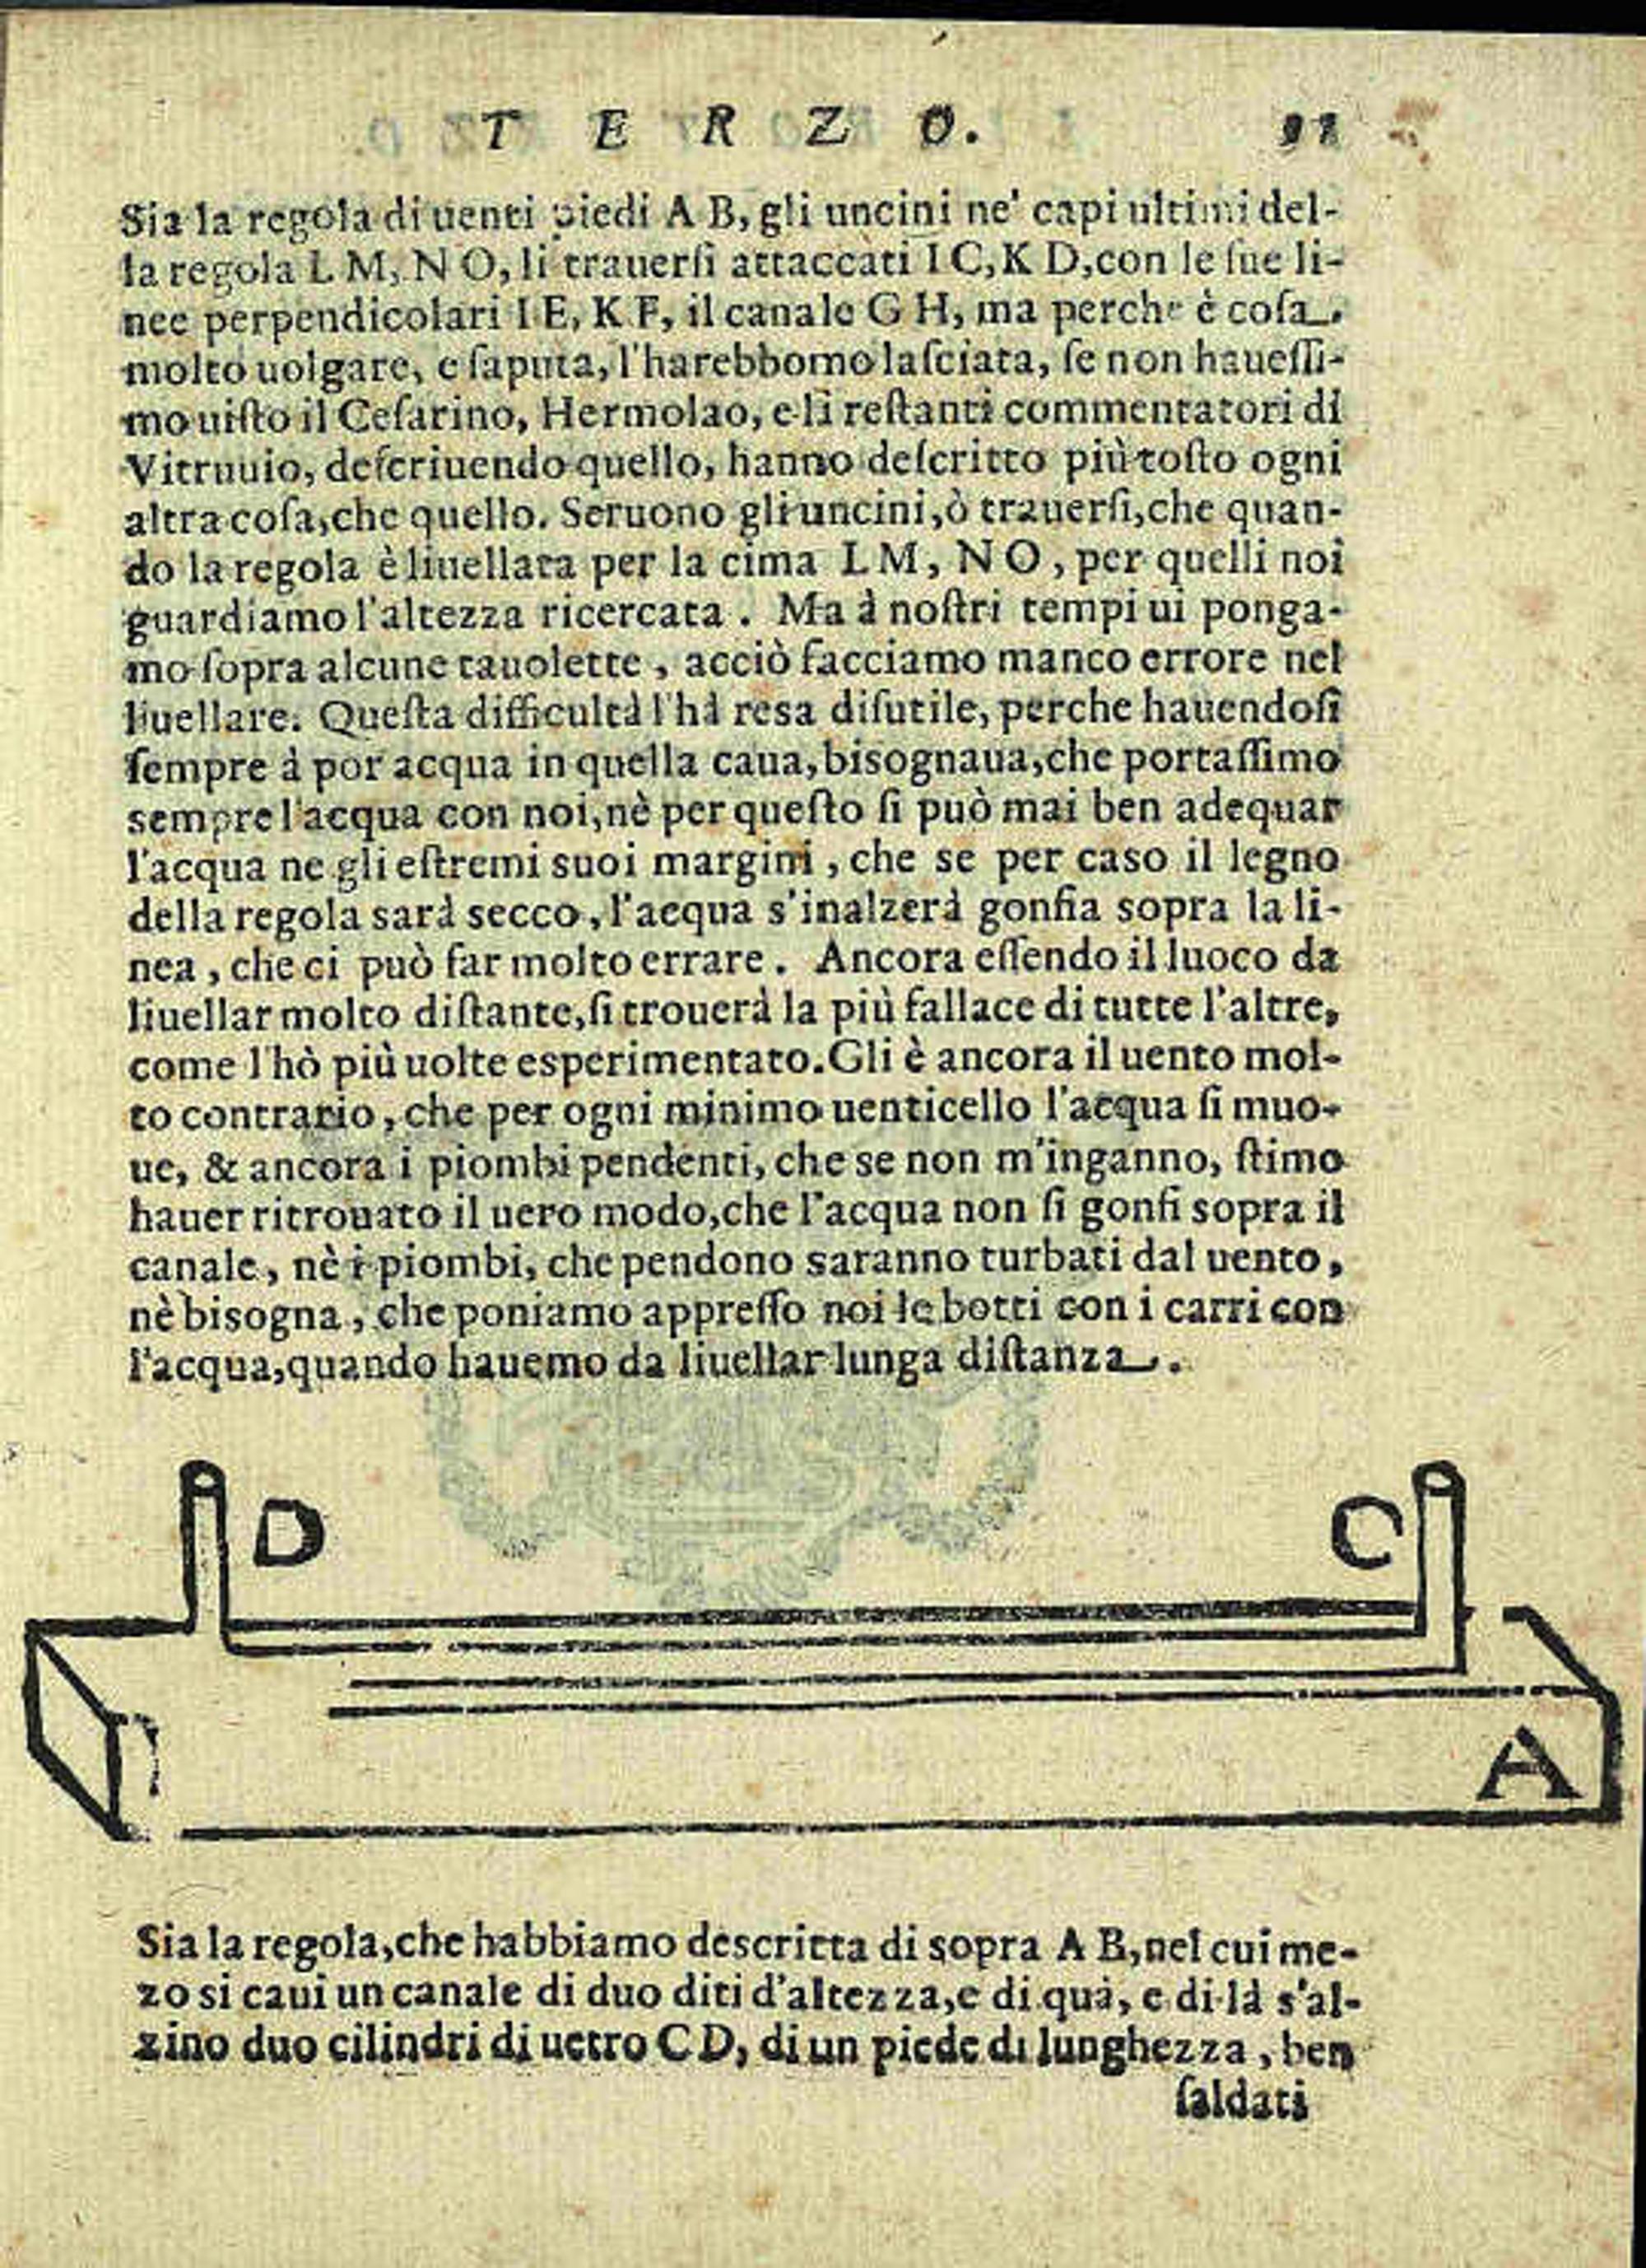 T E R Z O. 91
Sia la regola di uenti piedi A B, gli uncini ne' capi ultimi del-
la regola L M, N O, li trauerſi attaccati I C, K D, con le ſue li-
nee perpendicolari I E, K F, il canale G H, ma perche è coſa.
molto uolgare, e ſaputa, l'harebbomo laſciata, ſe non haueſſi-
mo uiſto il Ceſarino, Hermolao, e li reſtanti commentatori di
Vitruuio, deſcriuendo quello, hanno deſcritto più toſto ogni
altra coſa, che quello. Seruono gli uncini, ò trauerſi, che quan-
do la regola è liuellata per la cima L M, N O, per quelli noi
guardiamo l'altezza ricercata. Ma à noſtri tempi ui ponga-
mo ſopra alcune tauolette, acciò facciamo manco errore nel
liuellare. Queſta difficultà l'hà resa diſutile, perche hauendoſi
ſempre à por acqua in quella caua, bisognaua, che portaſſimo
sempre l'acqua con noi, nè per queſto ſi può mai ben adequar
l'acqua ne gli eſtremi suoi margini, che se per caso il legno
della regola sarà secco, l'acqua s'inalzerà gonfia sopra la li-
nea, che ci può far molto errare. Ancora eſſendo il luoco da
liuellar molto diſtante, ſi trouerà la più fallace di tutte l'altre,
come l'hò più uolte esperimentato. Gli è ancora il uento mol-
to contrario, che per ogni minimo uenticello l'acqua ſi muo-
ue, & ancora i piombi pendenti, che se non m'inganno, ſtimo
hauer ritrouato il uero modo, che l'acqua non ſi gonfi sopra il
canale, nè i piombi, che pendono saranno turbati dal uento,
nè bisogna, che poniamo appreſſo noi le botti con i carri con
l'acqua, quando hauemo da liuellar lunga diſtanza.
D C
A
Sia la regola, che habbiamo descritta di sopra A B, nel cui me-
zo si caui un canale di duo diti d'altezza, e di quà, e di là s'al-
zino duo cilindri di uetro C D, di un piede di lunghezza, ben
ſaldati